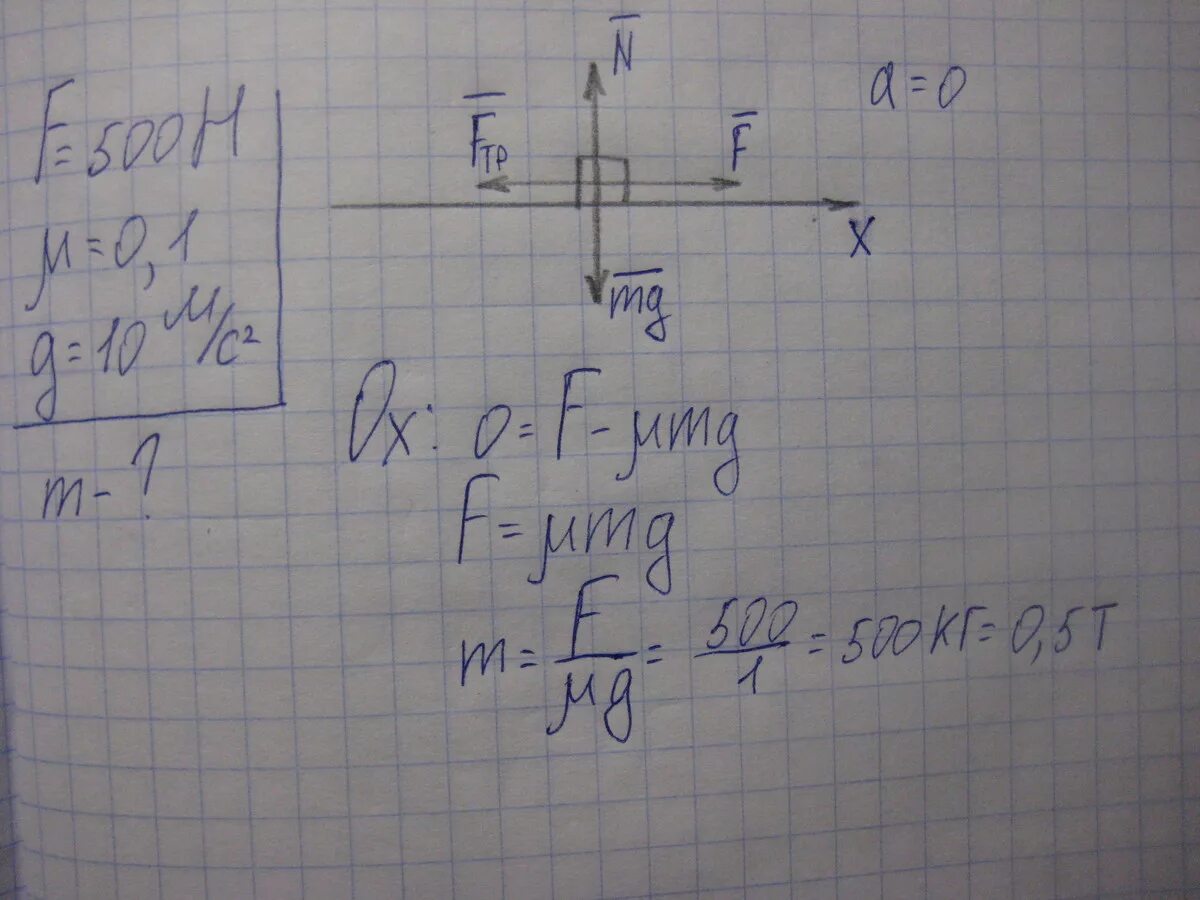 F=500Н
μ=0,1
g=10 м/с²
m-?
N
Fтр
F
a=0
X
mg
Ox: 0=F-μmg
F=μmg
m=F/μg=500/1=500кг=0,5т